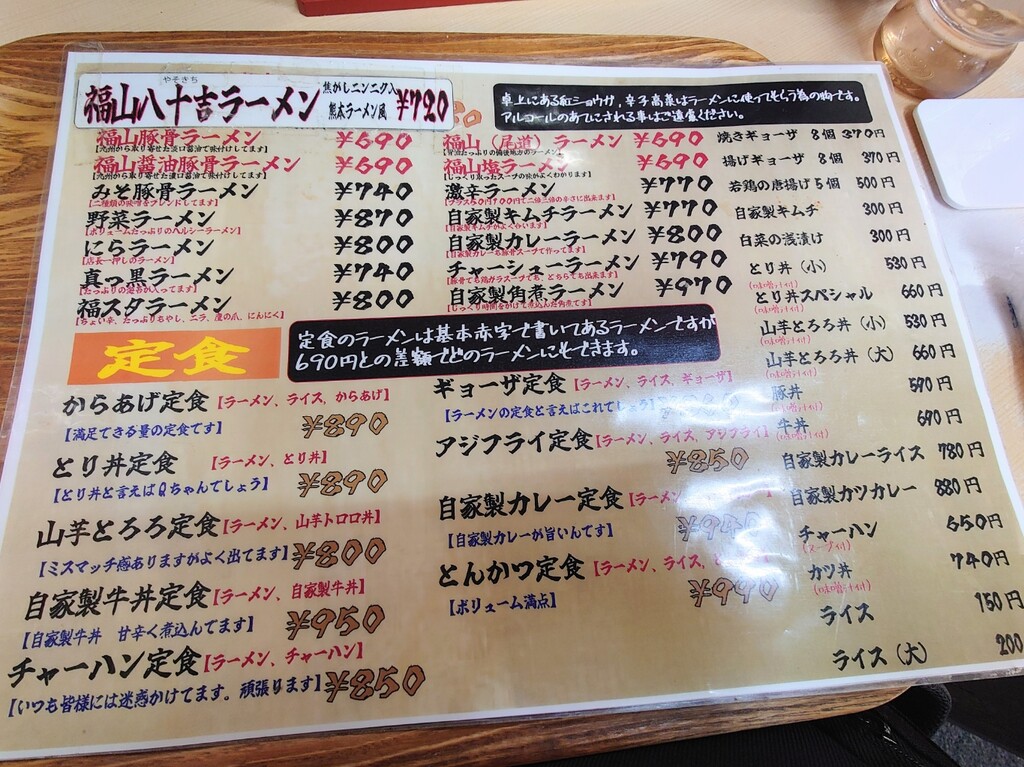 やそきち
福山八十吉ラーメン 焦がしニンニク入 熊本ラーメン風 ¥720
福山豚骨ラーメン ¥690
【九州から取り寄せた淡口醤油で味付けしてます】
福山醤油豚骨ラーメン ¥690
【九州から取り寄せた濃口醤油で味付けしてます】
みそ豚骨ラーメン ¥740
【二種類の味噌をブレンドしてます】
野菜ラーメン ¥870
【ボリュームたっぷりのヘルシーラーメン】
にらラーメン ¥800
【店長一押しのラーメン】
真っ黒ラーメン ¥740
福スタラーメン ¥800
【ちょい辛、たっぷりもやし、ニラ、鷹の爪、にんにく】
卓上にある紅ショウガ、辛子高菜はラーメンに使ってもらう為の物です。
アルコールのあてにされる事はご遠慮ください。
福山(尾道)ラーメン ¥690
福山塩ラーメン ¥690
【じっくり取ったスープの味がよくわかります】
激辛ラーメン ¥770
【プラス50円100円で二倍三倍の辛さに出来ます】
自家製キムチラーメン ¥770
【自家製キムチがよく合います】
自家製カレーラーメン ¥800
【自家製カレーも豚骨スープで作ってます】
チャーシューラーメン ¥790
【豚骨でも鶏ガラスープでも、どちらでも出来ます】
自家製角煮ラーメン ¥970
【じっくり時間をかけて煮込んだ角煮です】
定食
定食のラーメンは基本赤字で書いてあるラーメンですが
690円との差額でどのラーメンにもできます。
からあげ定食【ラーメン、ライス、からあげ】
【満足できる量の定食です】 ¥890
とり丼定食 【ラーメン、とり丼】
【とり丼と言えばQちゃんでしょう】 ¥890
山芋とろろ定食【ラーメン、山芋トロロ丼】
【ミスマッチ感ありますがよく出てます】 ¥800
自家製牛丼定食【ラーメン、自家製牛丼】
【自家製牛丼 甘辛く煮込んてます】 ¥950
チャーハン定食【ラーメン、チャーハン】
【いつも皆様には迷惑かけてます。頑張ります】 ¥850
ギョーザ定食【ラーメン、ライス、ギョーザ】
【ラーメンの定食と言えばこれでしょう】
アジフライ定食【ラーメン、ライス、アジフライ】
¥850
自家製カレー定食【ラーメン、
【自家製カレーが旨いんです】 ¥940
とんかつ定食【ラーメン、ライス、
【ボリューム満点】 ¥990
焼きギョーザ 8個 370円
揚げギョーザ 8個 370円
若鶏の唐揚げ5個 500円
自家製キムチ 300円
白菜の浅漬け 300円
とり丼(小) 530円
(味噌汁付)
とり丼スペシャル 660円
(味噌汁付)
山芋とろろ丼(小) 530円
(味噌汁付)
山芋とろろ丼(大) 660円
(味噌汁付)
豚丼 590円
(味噌汁付)
牛丼 690円
(味噌汁付)
自家製カレーライス 780円
自家製カツカレー 880円
チャーハン 650円
(スープ付)
カツ丼 740円
(味噌汁付)
ライス 150円
ライス(大) 200